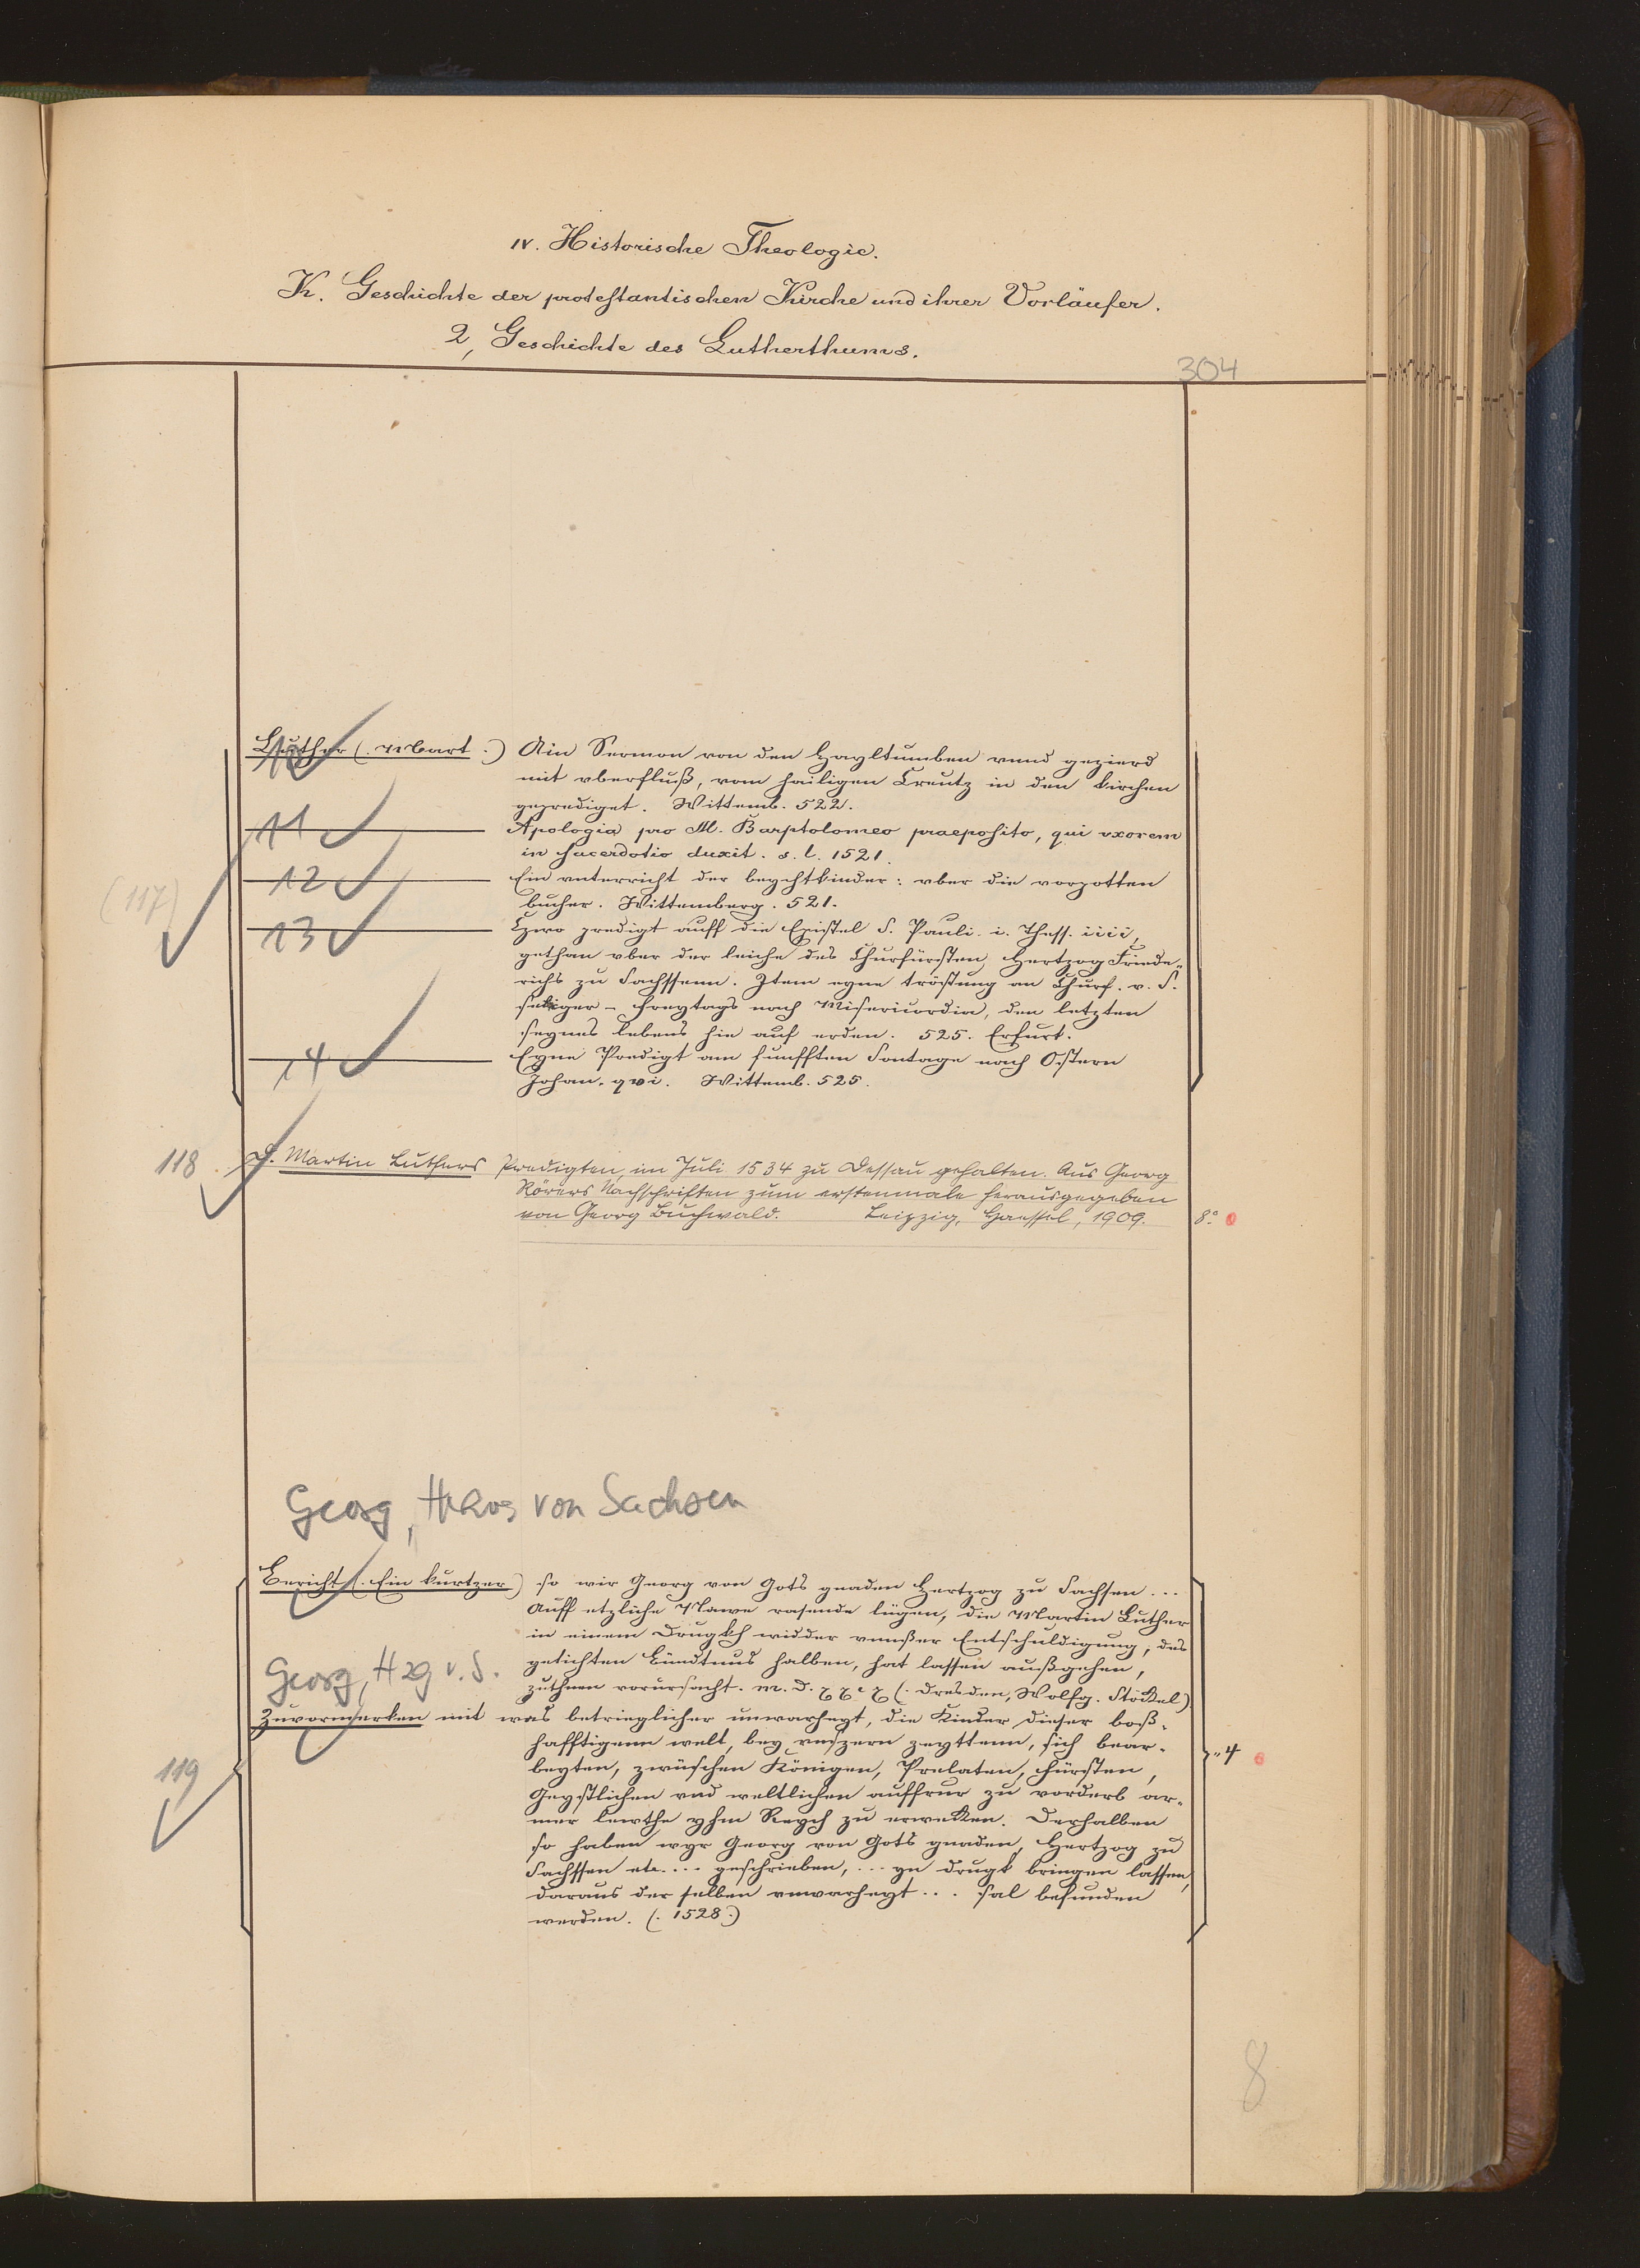 IV. Historische Theologie.
K. Geschichte der protestantischen Kirche und ihrer Vorläufer.
2, Geschichte des Lutherthums.
304
Luther (. Mart .) Ain Sermon von den Hayltumben vnnd gezierd
10
mit vberfluß, vom hailigen Creutz in den kirchen
geprediget. Wittemb. 522.
11 Apologia pro M. Barptolomeo praeposito, qui vxorem
in sacerdotio duxit. s. l. 1521.
(117)
12 Ein vnterricht der beychtkinder: vber die vorpotten
bucher. Wittemberg. 521.
13 Czwo predigt auff die Epistel S. Pauli. i. Thess. iiii,
gethan vber der leiche des Churfürsten, Hertzog Friede-
richs zu Sachssenn. Item eyne tröstung an Churf. v. S.
seliger - freytags nach Misericordia, den letzten
seynes lebens hie auf erden. 525. Erfurt.
14 Eyne Predigt am funfften Sontage nach Ostern
Johan. xvi. Wittemb. 525.
118. D. Martin Luthers Predigten, im Juli 1534 zu Dessau gehalten. Aus Georg
Rörers Nachschriften zum erstenmale herausgegeben
von Georg Buchwald. Leipzig, Haessel, 1909. 8°. 0
Georg, von Sachsen
Bericht (. Ein kurtzer) so wir Georg von Gots gnaden Hertzog zu Sachsen ...
Auff etzliche Nawe rasende lügen, die Martin Luther
in einem Drugkh widder vnnßer Entschuldigung, des
getichten Bündtnus halben, hat lassen außgehen,
Georg, Hzg v. S.
zuthuen vorursacht. m. d. (. Dresden, Wolfg. Stöckel)
Zuvormerken mit was betrieglicher unwarheyt, die Kinder dieser boß-
hafftigenn welt, bey vnszern zeyttenn, sich bear-
beyten, zwüschen Königen, Prelaten, fürsten,
119
„ 4 0
Geystlichen vnd weltlichen auffrur zu vorderb ar-
mer lewthe yhm Reych zu erwecken. Derhalben
so haben wyr Georg von Gots gnaden, Hertzog zu
Sachssen etc. ... geschrieben, ... yn drugk bringen lassen,
daraus der selben vnwarheyt ... sal befunden
werden. (. 1528.)
8